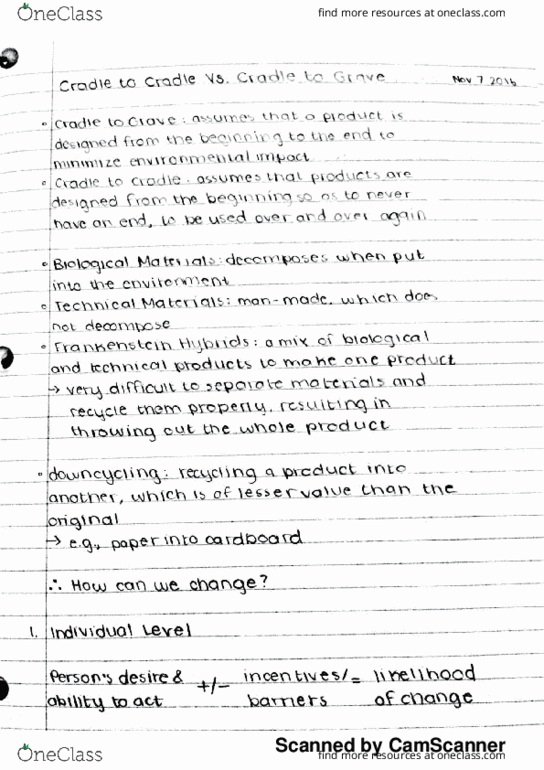 OneClass
find more resources at oneclass.com
Cradle to Cradle Vs. Cradle to Grave
Nov 7 2016
• Cradle to Grave: assumes that a product is
designed from the beginning to the end to
minimize environmental impact
• Cradle to cradle: assumes that products are
designed from the beginning so as to never
have an end, to be used over and over again
• Biological Materials: decomposes when put
into the enviroment
• Technical Materials: man-made, which does
not decompose
• Frankenstein Hybrids: a mix of biological
and technical products to make one product
→ very difficult to separate materials and
recycle them properly, resulting in
throwing out the whole product
• downcycling: recycling a product into
another, which is of lesser value than the
original
→ e.g., paper into cardboard
∴ How can we change?
1. Individual Level
Person's desire & +/- incentives/ = likelihood
ability to act barriers of change
Scanned by CamScanner
OneClass
find more resources at oneclass.com